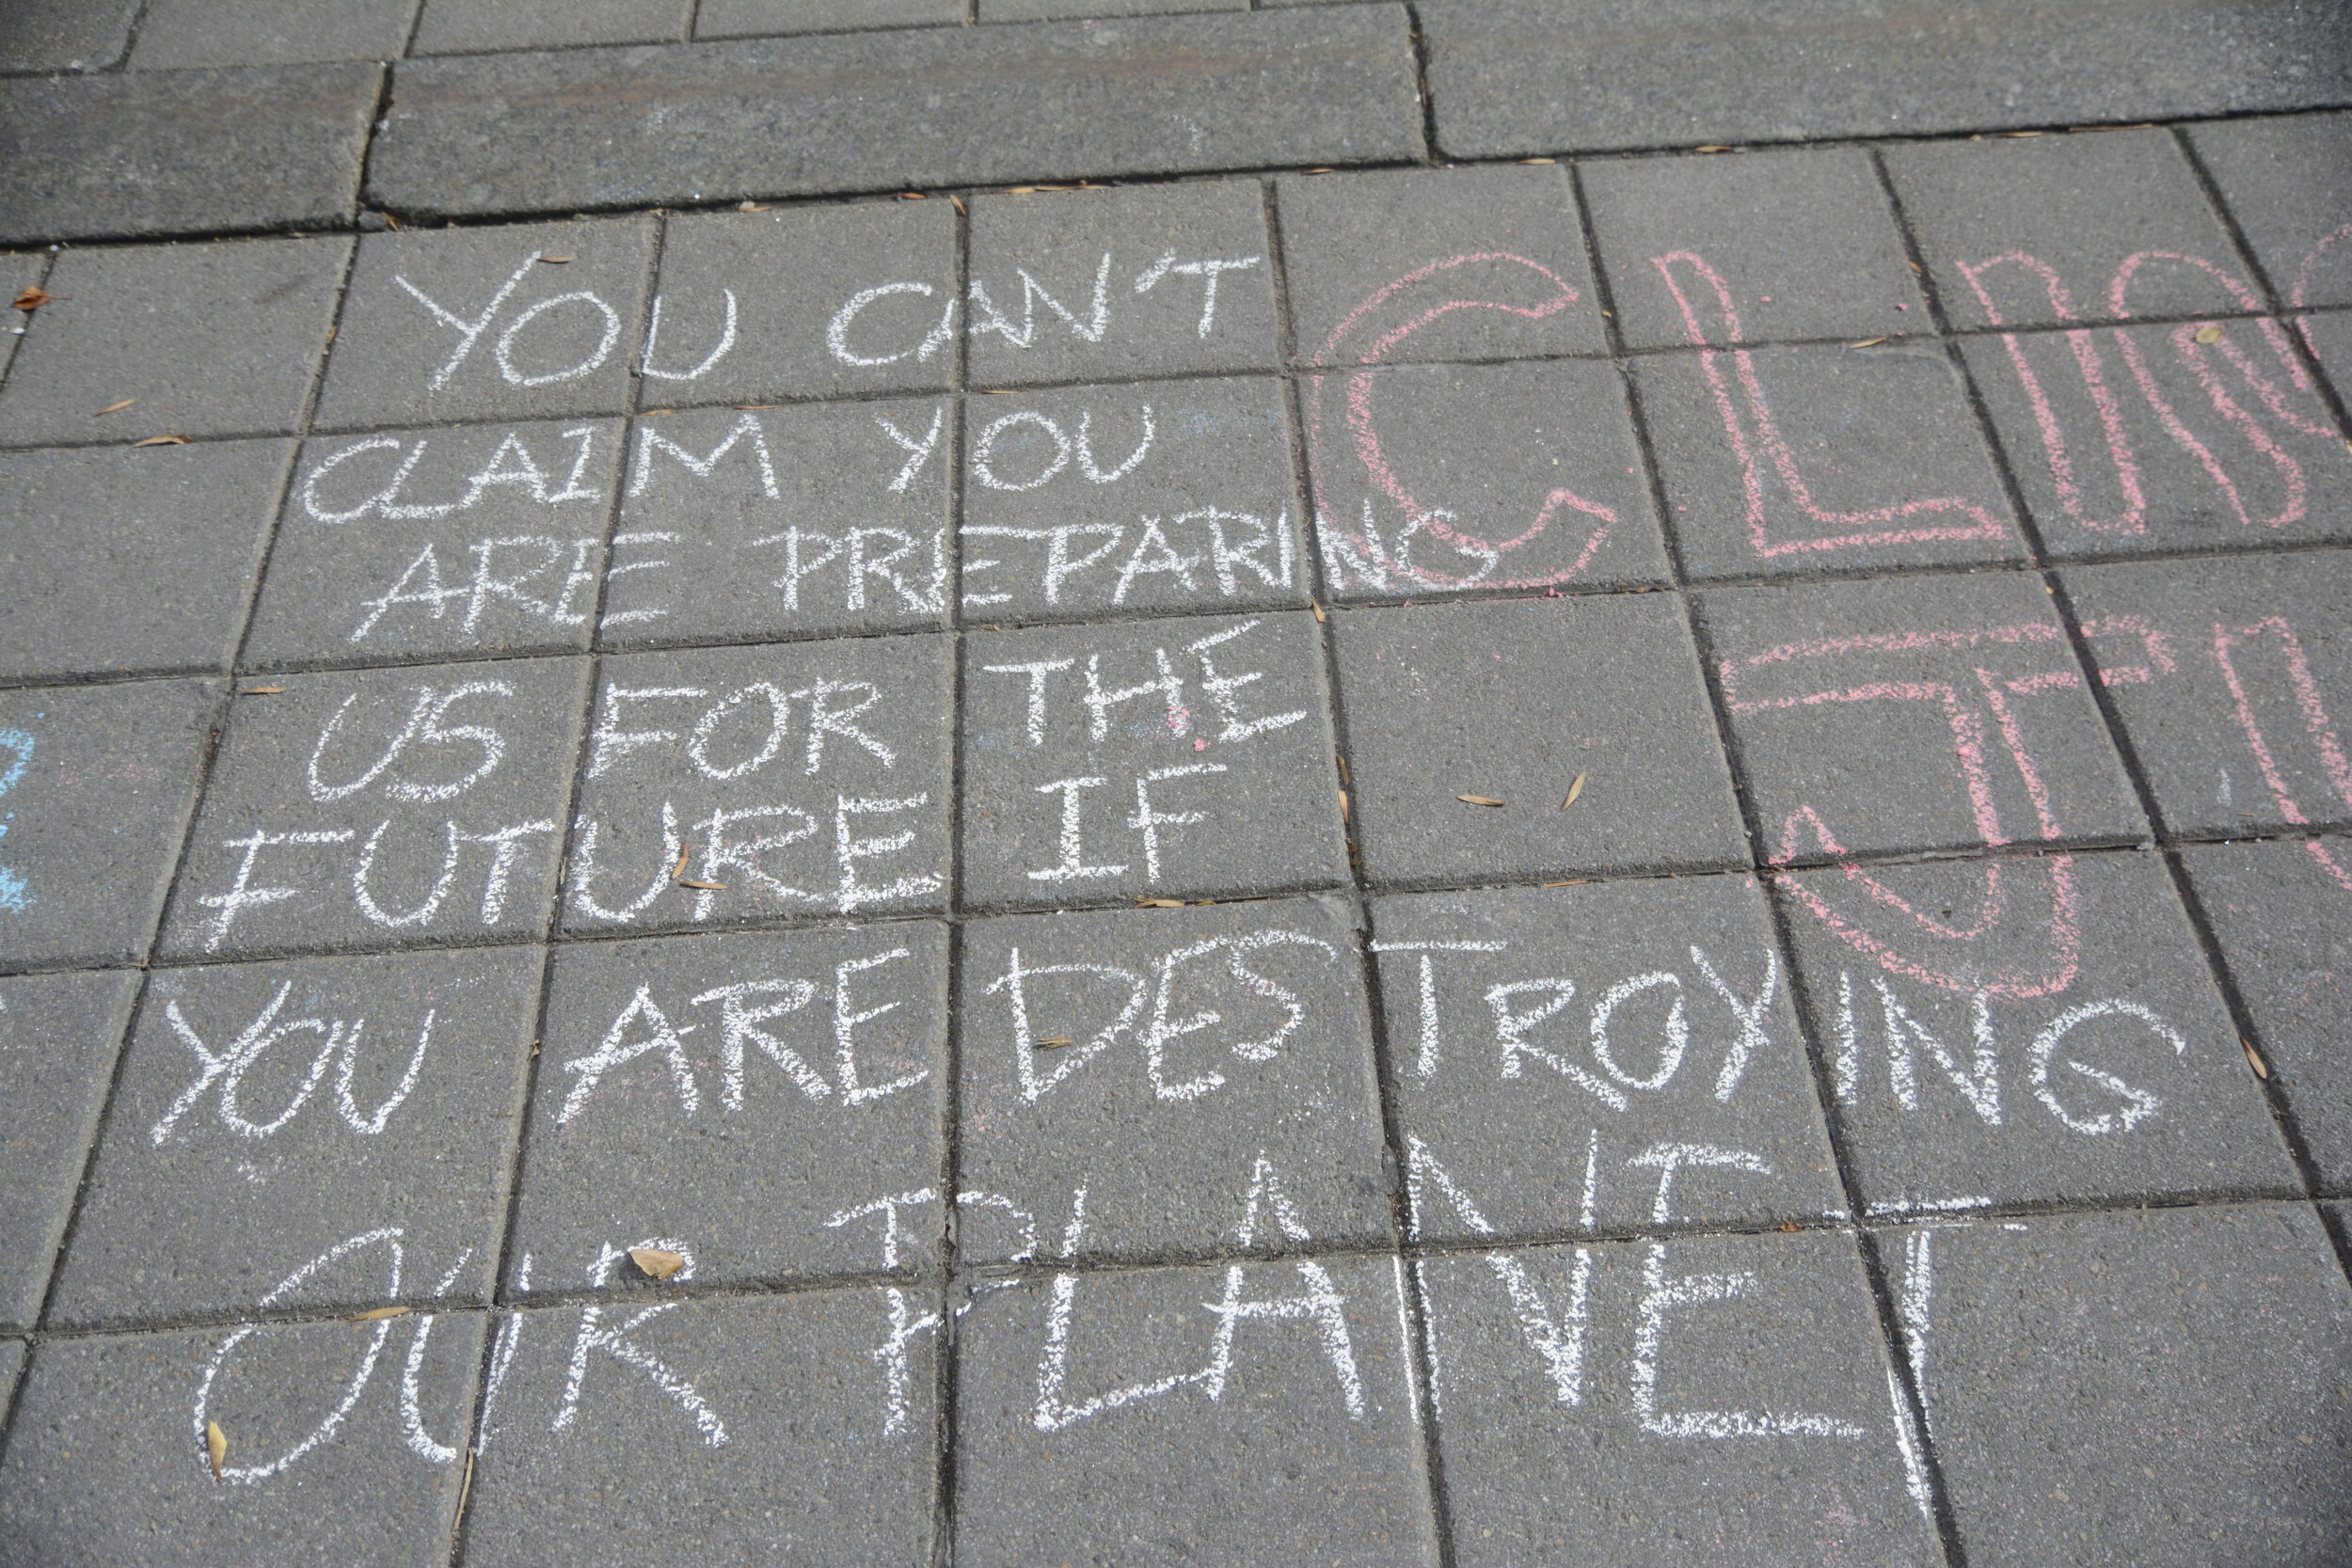 YOU CAN'T
CLAIM YOU
ARE PREPARING
US FOR THE
FUTURE IF
YOU ARE DESTROYING
OUR PLANET